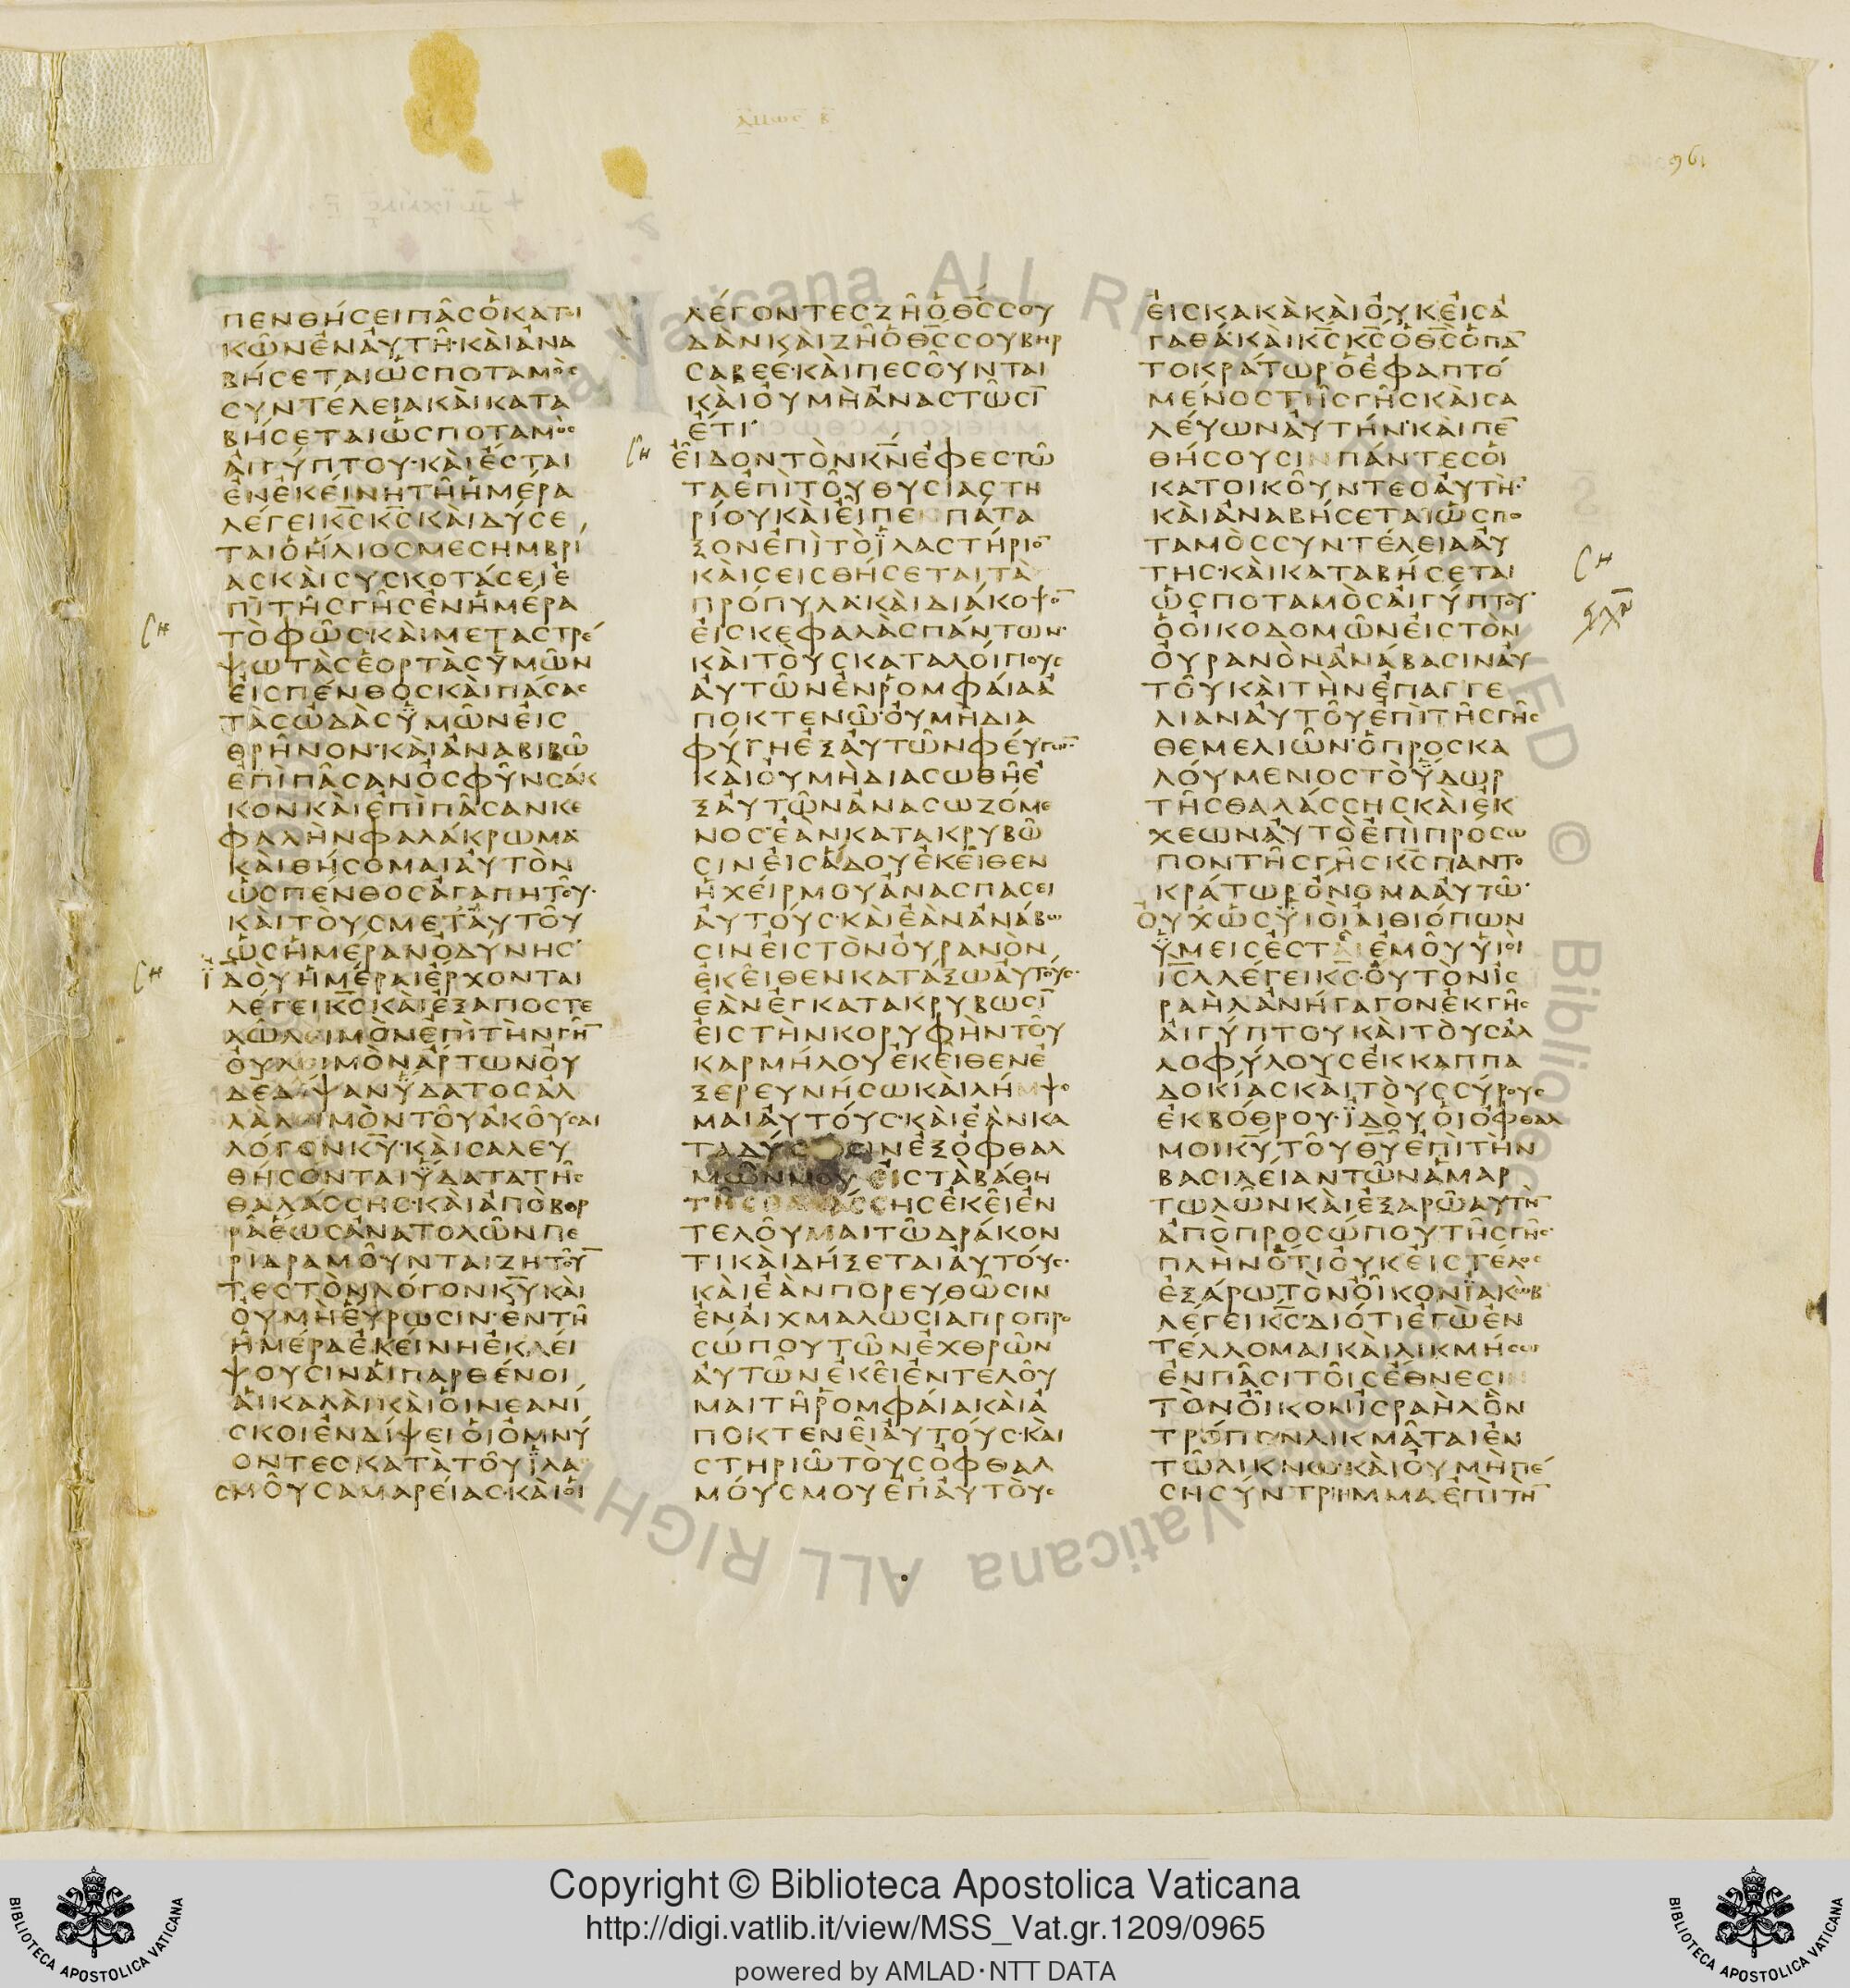 ΑΜΩΣ Β
961
ΠΕΝΘΗΣΕΙΠΑΣΟΚΑΤΟΙ
ΚΩΝΕΝΑΥΤΗ·ΚΑΙΑΝΑ
ΒΗΣΕΤΑΙΩΣΠΟΤΑΜΟΣ
ΣΥΝΤΕΛΕΙΑΚΑΙΚΑΤΑ
ΒΗΣΕΤΑΙΩΣΠΟΤΑΜΟΣ
ΑΙΓΥΠΤΟΥ·ΚΑΙΕΣΤΑΙ
ΕΝΕΚΕΙΝΗΤΗΗΜΕΡΑ
ΛΕΓΕΙΚ̅Σ̅Κ̅Σ̅ΚΑΙΔΥΣΕ
ΤΑΙΟΗΛΙΟΣΜΕΣΗΜΒΡΙ
ΑΣΚΑΙΣΥΣΚΟΤΑΣΕΙΕ
ΠΙΤΗΣΓΗΣΕΝΗΜΕΡΑ
ΤΟΦΩΣ·ΚΑΙΜΕΤΑΣΤΡΕ
ΨΩΤΑΣΕΟΡΤΑΣΥΜΩΝ
ΕΙΣΠΕΝΘΟΣΚΑΙΠΑΣΑΣ
ΤΑΣΩΔΑΣΥΜΩΝΕΙΣ
ΘΡΗΝΟΝ·ΚΑΙΑΝΑΒΙΒΩ
ΕΠΙΠΑΣΑΝΟΣΦΥΝΣΑΚ
ΚΟΝΚΑΙΕΠΙΠΑΣΑΝΚΕ
ΦΑΛΗΝΦΑΛΑΚΡΩΜΑ
ΚΑΙΘΗΣΟΜΑΙΑΥΤΟΝ
ΩΣΠΕΝΘΟΣΑΓΑΠΗΤΟΥ·
ΚΑΙΤΟΥΣΜΕΤΑΥΤΟΥ
ΩΣΗΜΕΡΑΝΟΔΥΝΗΣ
ΪΔΟΥΗΜΕΡΑΙΕΡΧΟΝΤΑΙ
ΛΕΓΕΙΚ̅Σ̅ΚΑΙΕΞΑΠΟΣΤΕ
ΛΩΛΕΙΜΟΝΕΠΙΤΗΝΓΗ̅
ΟΥΛΕΙΜΟΝΑΡΤΩΝΟΥ
ΔΕΔΙΨΑΝΥΔΑΤΟΣΑΛ
ΛΑΛΕΙΜΟΝΤΟΥΑΚΟΥΣΑΙ
ΛΟΓΟΝΚ̅Υ̅·ΚΑΙΣΑΛΕΥ
ΘΗΣΟΝΤΑΙΥΔΑΤΑΤΗΣ
ΘΑΛΑΣΣΗΣ·ΚΑΙΑΠΟΒΟΡ
ΡΑΕΩΣΑΝΑΤΟΛΩΝΠΕ
ΡΙΔΡΑΜΟΥΝΤΑΙΖΗΤΟΥ̅
ΤΕΣΤΟΝΛΟΓΟΝΚ̅Υ̅ΚΑΙ
ΟΥΜΗΕΥΡΩΣΙΝ·ΕΝΤΗ
ΗΜΕΡΑΕΚΕΙΝΗΕΚΛΕΙ
ΨΟΥΣΙΝΑΙΠΑΡΘΕΝΟΙ
ΑΙΚΑΛΑΙΚΑΙΟΙΝΕΑΝΙ
ΣΚΟΙΕΝΔΙΨΕΙΟΙΟΜΝΥ
ΟΝΤΕΣΚΑΤΑΤΟΥΙΛΑ
ΣΜΟΥΣΑΜΑΡΕΙΑΣ·ΚΑΙΟΙ
ΛΕΓΟΝΤΕΣΖΗΟΘ̅Σ̅ΣΟΥ
ΔΑΝΚΑΙΖΗΟΘ̅Σ̅ΣΟΥΒΗΡ
ΣΑΒΕΕ·ΚΑΙΠΕΣΟΥΝΤΑΙ
ΚΑΙΟΥΜΗΑΝΑΣΤΩΣΙ̅
ΕΤΙ·
ΕΙΔΟΝΤΟΝΚ̅Ν̅ΕΦΕΣΤΩ
ΤΑΕΠΙΤΟΥΘΥΣΙΑΣΤΗ
ΡΙΟΥΚΑΙΕΙΠΕΝΠΑΤΑ
ΞΟΝΕΠΙΤΟΪΛΑΣΤΗΡΙΟ̅
ΚΑΙΣΕΙΣΘΗΣΕΤΑΙΤΑ
ΠΡΟΠΥΛΑ·ΚΑΙΔΙΑΚΟΨΟ̅
ΕΙΣΚΕΦΑΛΑΣΠΑΝΤΩΝ·
ΚΑΙΤΟΥΣΚΑΤΑΛΟΙΠΟΥΣ
ΑΥΤΩΝΕΝΡΟΜΦΑΙΑΑ
ΠΟΚΤΕΝΩ·ΟΥΜΗΔΙΑ
ΦΥΓΗΕΞΑΥΤΩΝΦΕΥΓΩΝ
ΚΑΙΟΥΜΗΔΙΑΣΩΘΗΕ
ΞΑΥΤΩΝΑΝΑΣΩΖΟΜΕ
ΝΟΣ·ΕΑΝΚΑΤΑΚΡΥΒΩ
ΣΙΝΕΙΣΑΔΟΥΕΚΕΙΘΕΝ
ΗΧΕΙΡΜΟΥΑΝΑΣΠΑΣΕΙ
ΑΥΤΟΥΣ·ΚΑΙΕΑΝΑΝΑΒΩ
ΣΙΝΕΙΣΤΟΝΟΥΡΑΝΟΝ
ΕΚΕΙΘΕΝΚΑΤΑΞΩΑΥΤΟΥΣ·
ΕΑΝΕΓΚΑΤΑΚΡΥΒΩΣΙ̅
ΕΙΣΤΗΝΚΟΡΥΦΗΝΤΟΥ
ΚΑΡΜΗΛΟΥΕΚΕΙΘΕΝΕ
ΞΕΡΕΥΝΗΣΩΚΑΙΛΗΜΨΟ
ΜΑΙΑΥΤΟΥΣ·ΚΑΙΕΑΝΚΑ
ΤΑΔΥΣΩΣΙΝΕΞΟΦΘΑΛ
ΜΩΝΜΟΥΕΙΣΤΑΒΑΘΗ
ΤΗΣΘΑΛΑΣΣΗΣΕΚΕΙΕΝ
ΤΕΛΟΥΜΑΙΤΩΔΡΑΚΟΝ
ΤΙΚΑΙΔΗΞΕΤΑΙΑΥΤΟΥΣ·
ΚΑΙΕΑΝΠΟΡΕΥΘΩΣΙΝ
ΕΝΑΙΧΜΑΛΩΣΙΑΠΡΟΠΡΟ
ΣΩΠΟΥΤΩΝΕΧΘΡΩΝ
ΑΥΤΩΝΕΚΕΙΕΝΤΕΛΟΥ
ΜΑΙΤΗΡΟΜΦΑΙΑΚΑΙΑ
ΠΟΚΤΕΝΕΙΑΥΤΟΥΣ·ΚΑΙ
ΣΤΗΡΙΩΤΟΥΣΟΦΘΑΛ
ΜΟΥΣΜΟΥΕΠΑΥΤΟΥΣ
ΕΙΣΚΑΚΑΚΑΙΟΥΚΕΙΣΑ
ΓΑΘΑ·ΚΑΙΚ̅Σ̅Κ̅Σ̅ΟΘ̅Σ̅ΟΠΑ̅
ΤΟΚΡΑΤΩΡΟΕΦΑΠΤΟ
ΜΕΝΟΣΤΗΣΓΗΣΚΑΙΣΑ
ΛΕΥΩΝΑΥΤΗΝ·ΚΑΙΠΕ̅
ΘΗΣΟΥΣΙΝΠΑΝΤΕΣΟΙ
ΚΑΤΟΙΚΟΥΝΤΕΣΑΥΤΗ̅·
ΚΑΙΑΝΑΒΗΣΕΤΑΙΩΣΠΟ
ΤΑΜΟΣΣΥΝΤΕΛΕΙΑΑΥ
ΤΗΣ·ΚΑΙΚΑΤΑΒΗΣΕΤΑΙ
ΩΣΠΟΤΑΜΟΣΑΙΓΥΠΤΟΥ·
ΟΟΙΚΟΔΟΜΩΝΕΙΣΤΟΝ
ΟΥΡΑΝΟΝΑΝΑΒΑΣΙΝΑΥ
ΤΟΥΚΑΙΤΗΝΕΠΑΓΓΕ
ΛΙΑΝΑΥΤΟΥΕΠΙΤΗΣΓΗΣ
ΘΕΜΕΛΙΩΝ·ΟΠΡΟΣΚΑ
ΛΟΥΜΕΝΟΣΤΟΥΔΩΡ
ΤΗΣΘΑΛΑΣΣΗΣΚΑΙΕΚ
ΧΕΩΝΑΥΤΟΕΠΙΠΡΟΣΩ
ΠΟΝΤΗΣΓΗΣΚ̅Σ̅ΠΑΝΤΟ
ΚΡΑΤΩΡΟΝΟΜΑΑΥΤΩ·
ΟΥΧΩΣΥΙΟΙΑΙΘΙΟΠΩΝ
ΥΜΕΙΣΕΣΤΑΙΕΜΟΥΥΙΟΙ
ΙΣΛΛΕΓΕΙΚ̅Σ̅·ΟΥΤΟΝΙΣ
ΡΑΗΛΑΝΗΓΑΓΟΝΕΚΓΗΣ
ΑΙΓΥΠΤΟΥΚΑΙΤΟΥΣΑΛ
ΛΟΦΥΛΟΥΣΕΚΚΑΠΠΑ
ΔΟΚΙΑΣΚΑΙΤΟΥΣΣΥΡΟΥΣ
ΕΚΒΟΘΡΟΥ·ΪΔΟΥΟΙΟΦΘΑΛ
ΜΟΙΚ̅Υ̅ΤΟΥΘ̅Υ̅ΕΠΙΤΗΝ
ΒΑΣΙΛΕΙΑΝΤΩΝΑΜΑΡ
ΤΩΛΩΝΚΑΙΕΞΑΡΩΑΥΤΗ̅
ΑΠΟΠΡΟΣΩΠΟΥΤΗΣΓΗΣ·
ΠΛΗΝΟΤΙΟΥΚΕΙΣΤΕΛΟΣ
ΕΞΑΡΩΤΟΝΟΙΚΟΝΪΑΚΩΒ
ΛΕΓΕΙΚ̅Σ̅·ΔΙΟΤΙΕΓΩΕΝ
ΤΕΛΛΟΜΑΙΚΑΙΛΙΚΜΗΣΩ
ΕΝΠΑΣΙΤΟΙΣΕΘΝΕΣΙΝ
ΤΟΝΟΙΚΟΝΙΣΡΑΗΛΟΝ
ΤΡΟΠΟΝΛΙΚΜΑΤΑΙΕΝ
ΤΩΛΙΚΝΩ·ΚΑΙΟΥΜΗΠΕ
ΣΗΣΥΝΤΡΙΜΜΑΕΠΙΤΗ̅
Copyright © Biblioteca Apostolica Vaticana
http://digi.vatlib.it/view/MSS_Vat.gr.1209/0965
powered by AMLAD·NTT DATA
BIBLIOTECA APOSTOLICA VATICANA
BIBLIOTECA APOSTOLICA VATICANA